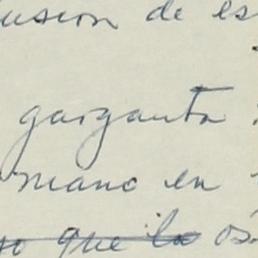 fusion de es
garganta
mano en
que la os